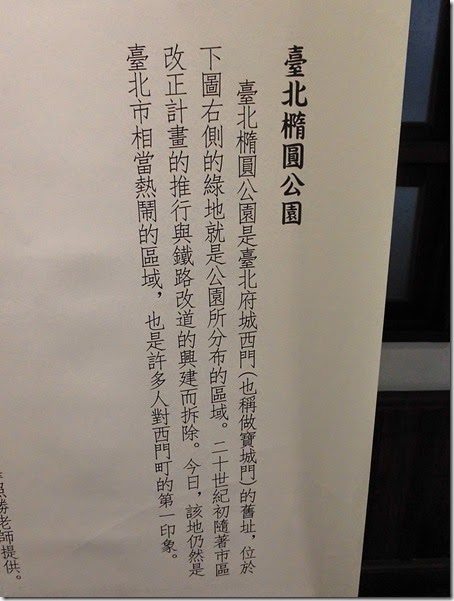 臺北橢圓公園
臺北橢圓公園是臺北府城西門（也稱做寶城門）的舊址，位於
下圖右側的綠地就是公園所分布的區域。二十世紀初隨著市區
改正計畫的推行與鐵路改道的興建而拆除。今日，該地仍然是
臺北市相當熱鬧的區域，也是許多人對西門町的第一印象。
照勝老師提供。